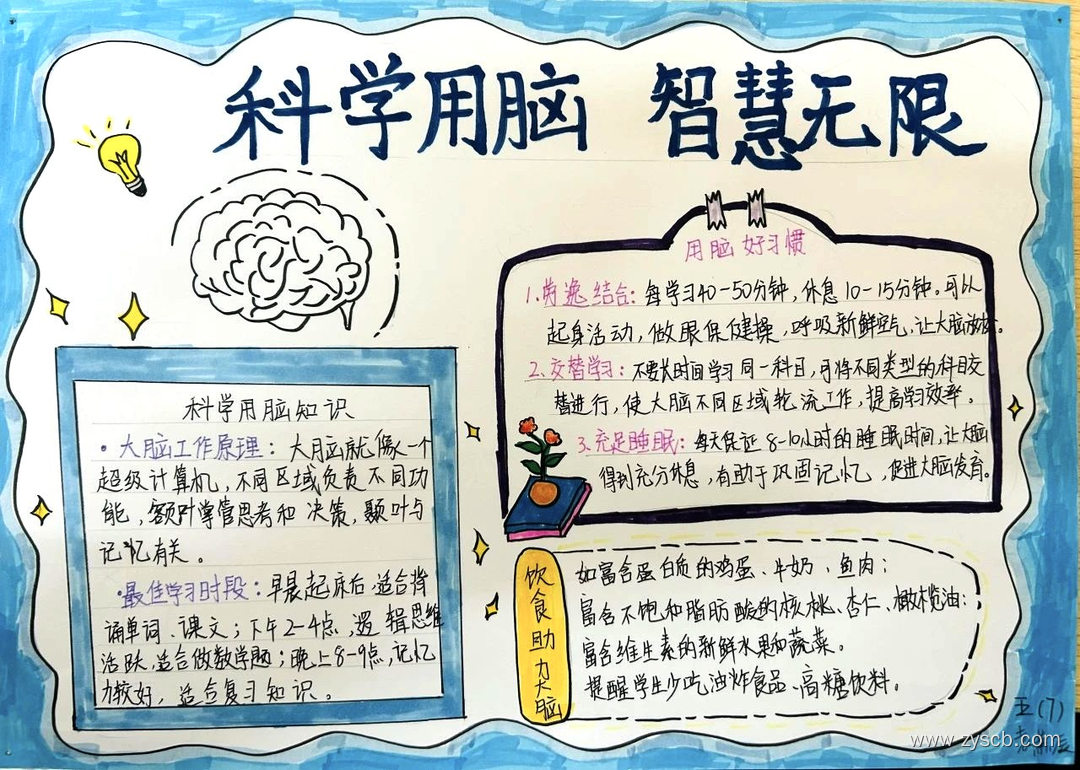 科学用脑 智慧无限
用脑好习惯
1.劳逸结合：每学习40-50分钟，休息10-15分钟。可以
起身活动，做眼保健操，呼吸新鲜空气，让大脑放松。
2.交替学习：不要长时间学习同一科目，可将不同类型的科目交
替进行，使大脑不同区域轮流工作，提高学习效率。
3.充足睡眠：每天保证8-10小时的睡眠时间，让大脑
得到充分休息，有助于巩固记忆，促进大脑发育。
科学用脑知识
·大脑工作原理：大脑就像一个
超级计算机，不同区域负责不同功
能，额叶掌管思考和决策，颞叶与
记忆有关。
·最佳学习时段：早晨起床后适合背
诵单词、课文；下午2-4点，逻辑思维
活跃，适合做数学题；晚上8-9点，记忆
力较好，适合复习知识。
饮食助力大脑
如富含蛋白质的鸡蛋、牛奶、鱼肉；
富含不饱和脂肪酸的核桃、杏仁、橄榄油；
富含维生素的新鲜水果和蔬菜。
提醒学生少吃油炸食品、高糖饮料。
五(7)
www.zyscb.com